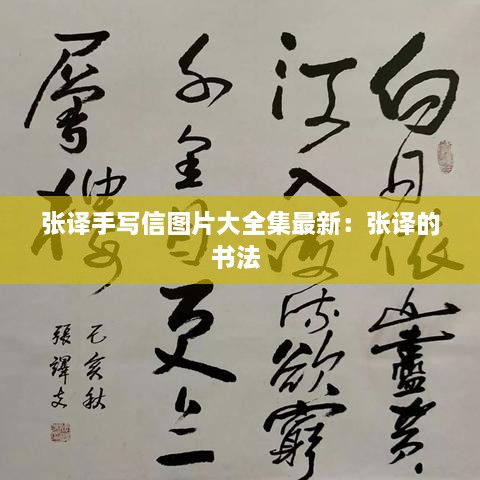 张译手写信图片大全集最新：张译的
书法
白日依山盡黃
河入海流欲窮
千里目更上一
層樓
己亥秋
張譯文